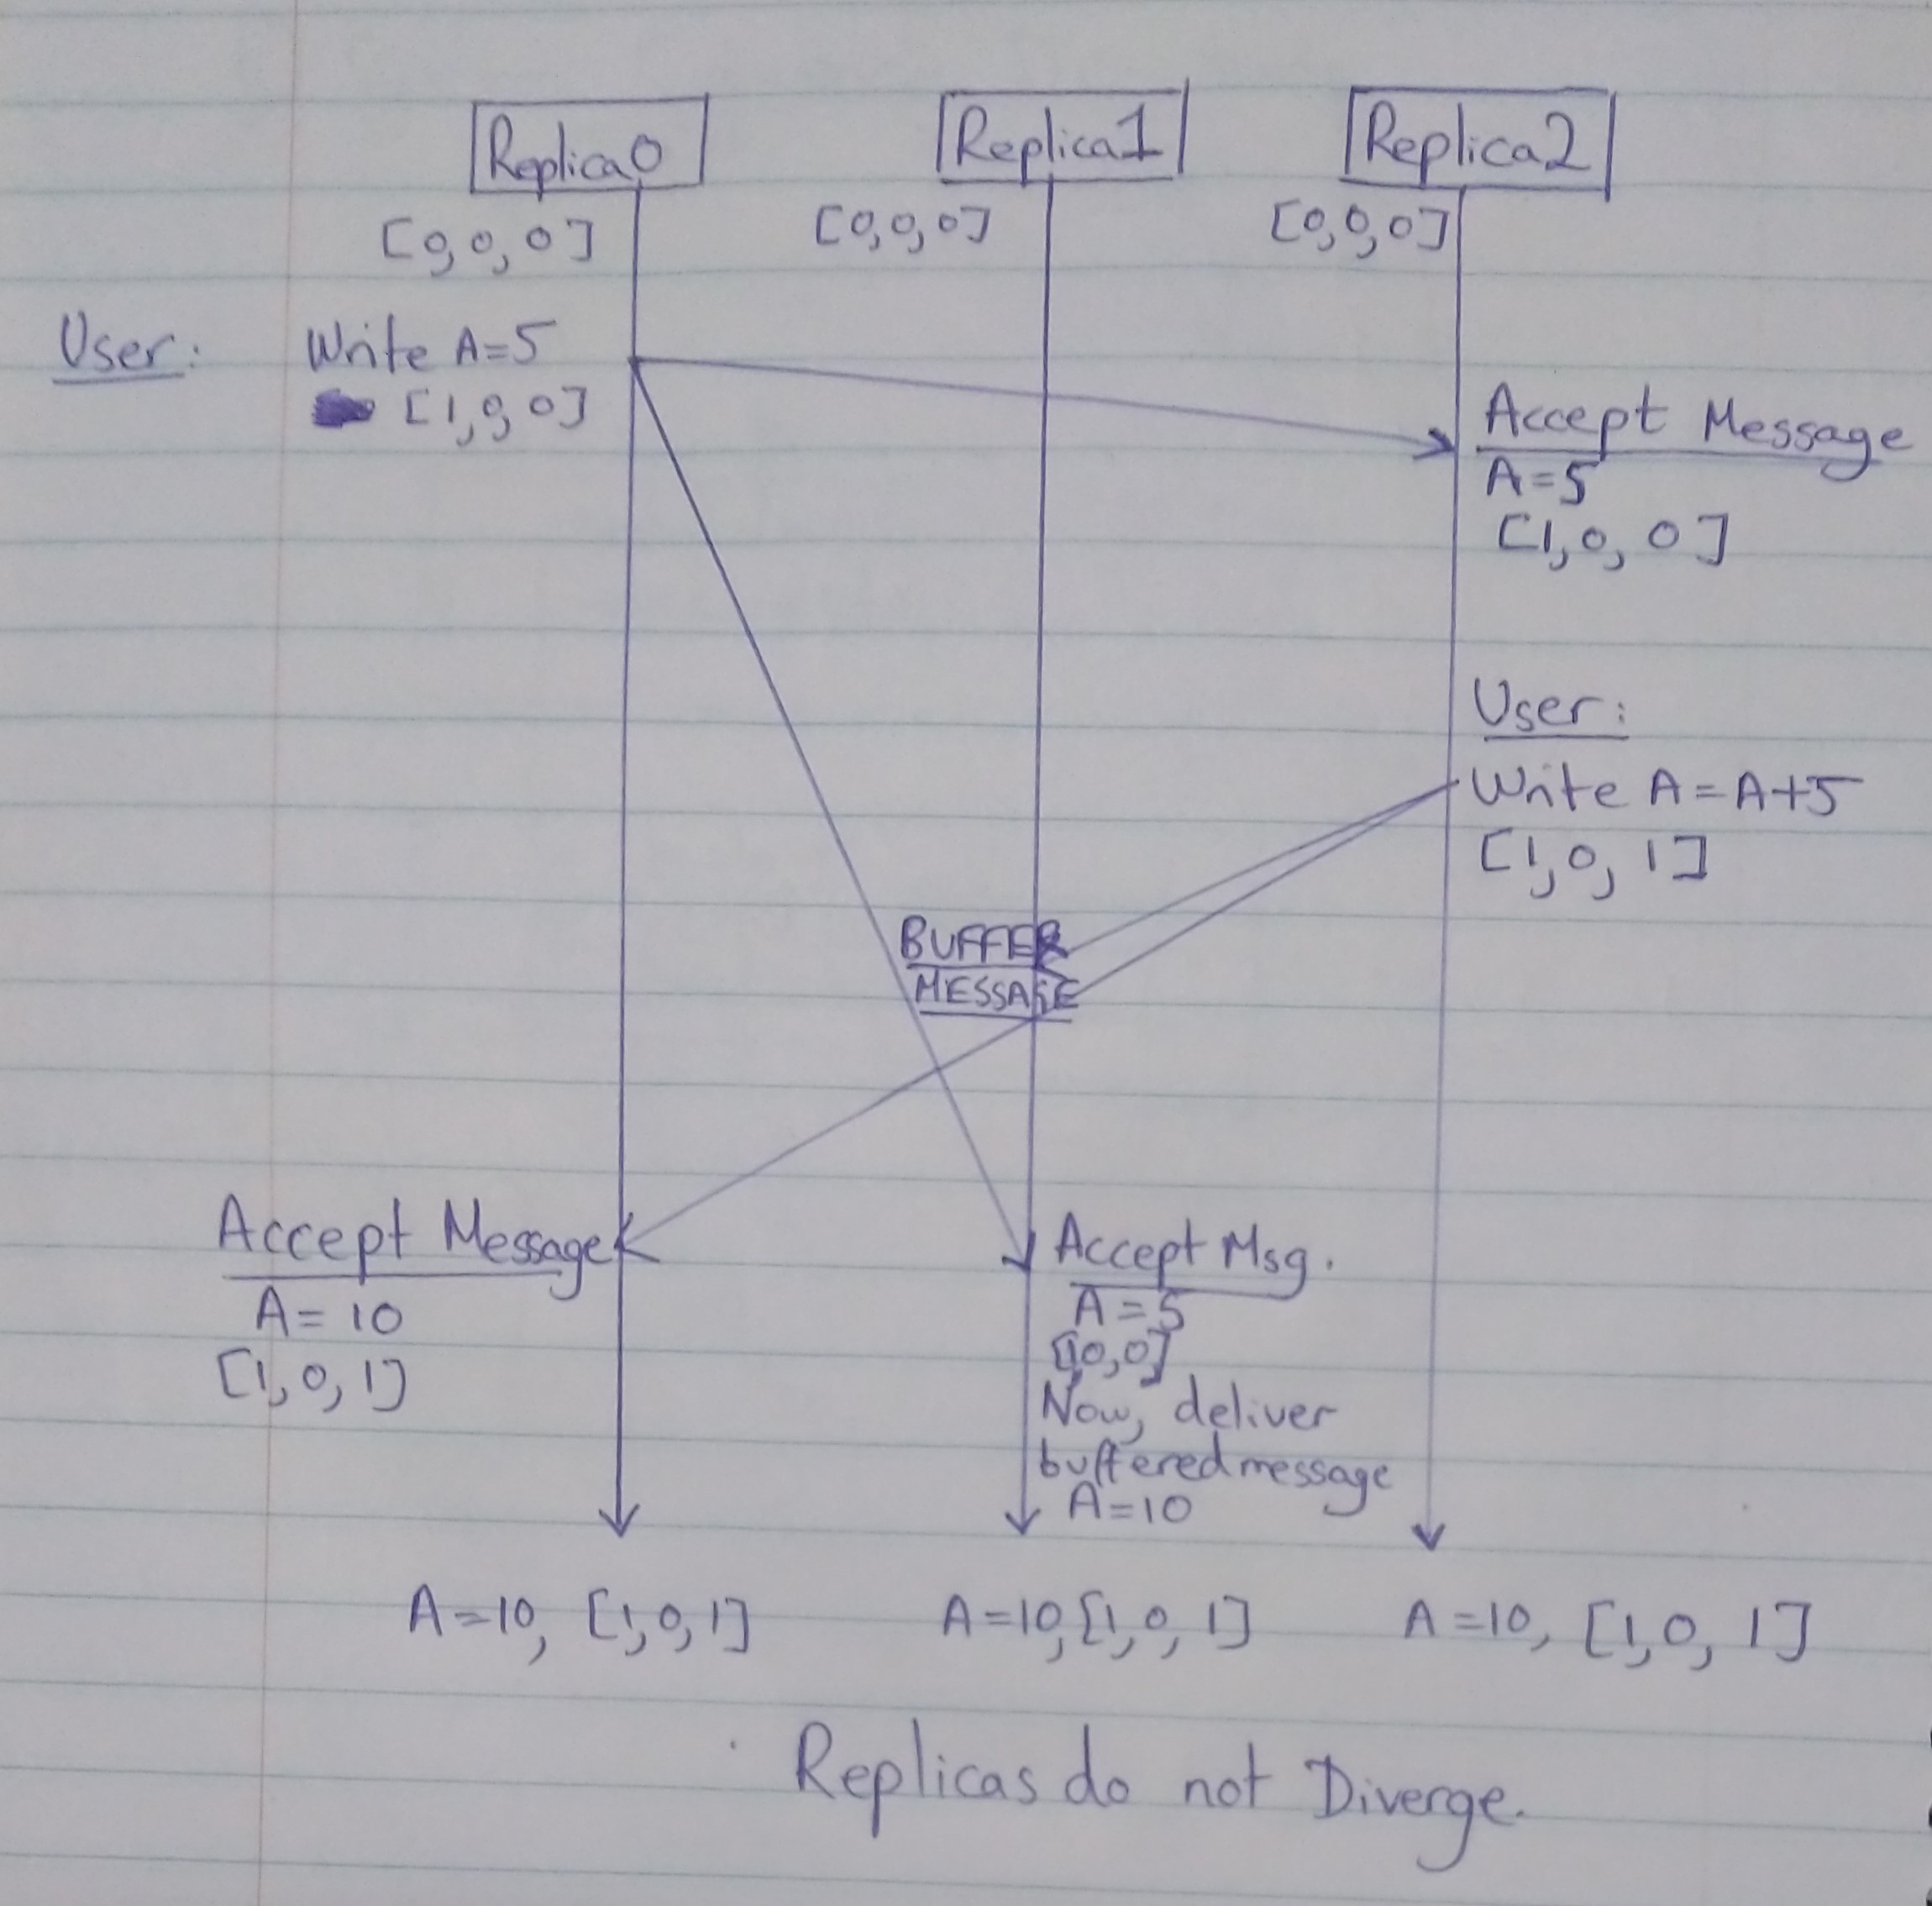 Replica0
Replica1
Replica2
[0,0,0]
[0,0,0]
[0,0,0]
User:
Write A=5
[1,0,0]
Accept Message
A=5
[1,0,0]
User:
Write A=A+5
[1,0,1]
BUFFER
MESSAGE
Accept Message
A=10
[1,0,1]
Accept Msg.
A=5
[1,0,0]
Now, deliver
buffered message
A=10
A=10, [1,0,1]
A=10,[1,0,1]
A=10, [1,0,1]
Replicas do not Diverge.